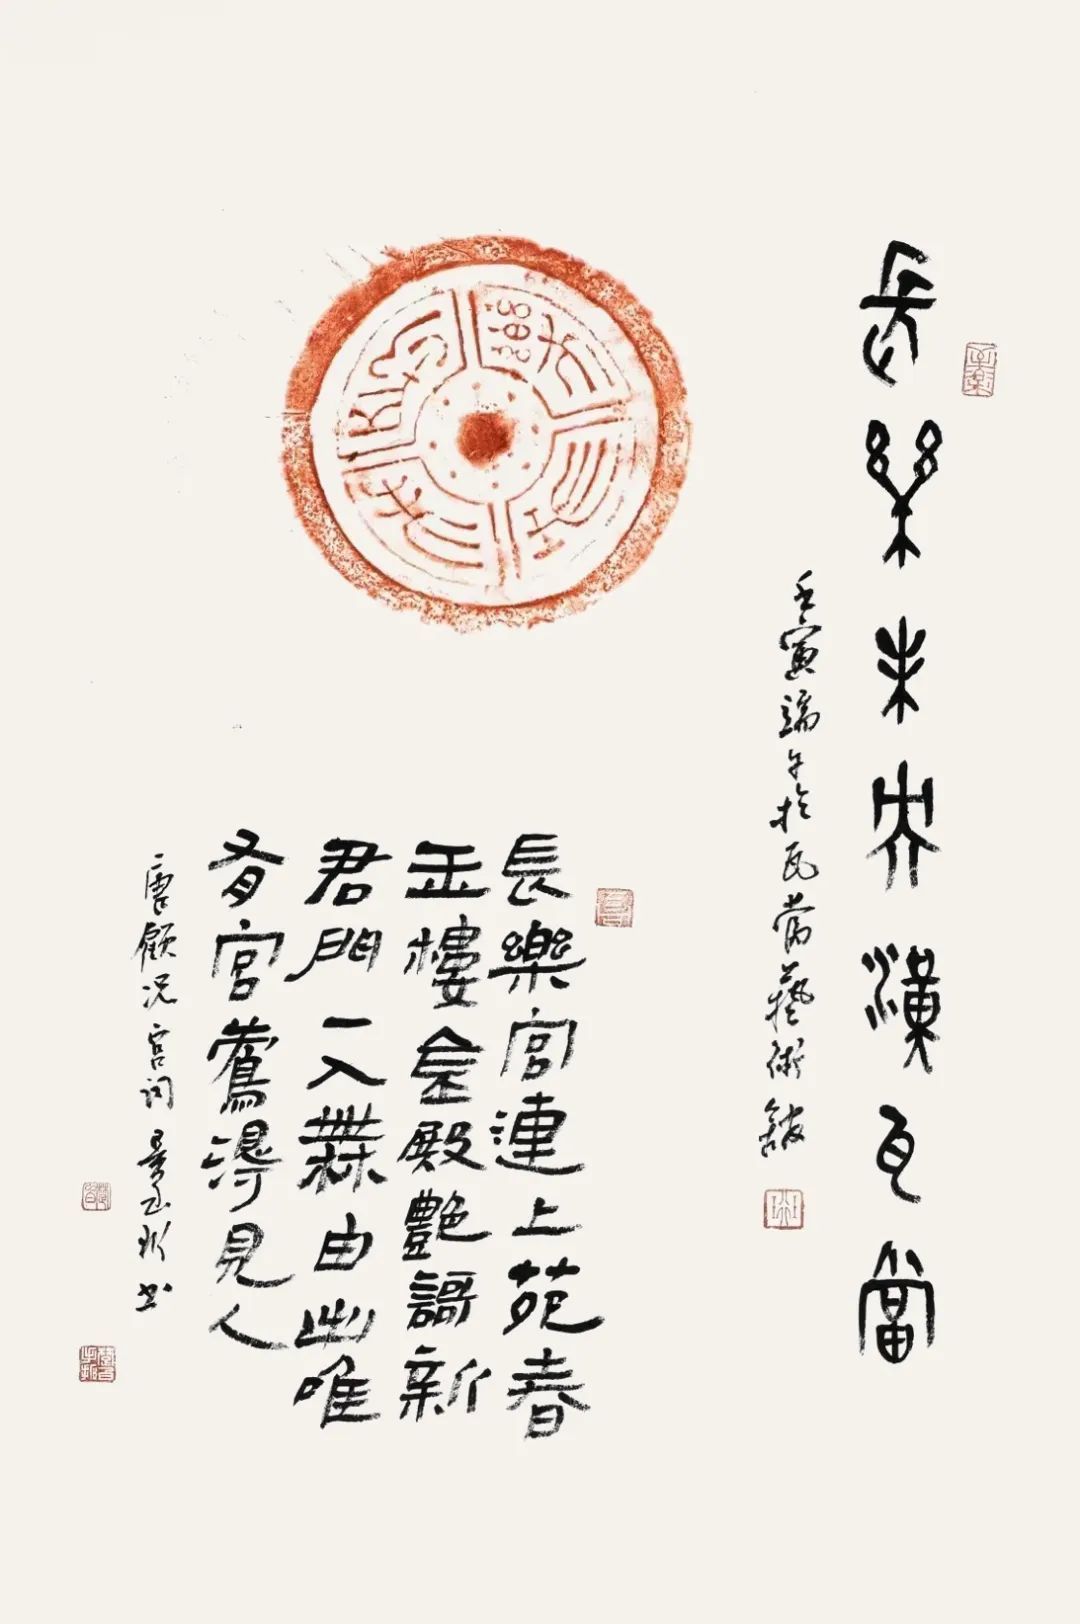 長樂未央漢瓦當
壬寅端午於瓦當藝術舘
長樂宮連上苑春
玉樓金殿艷謌新
君門一入無由出唯
有宮鶯得見人
唐顧況宮詞 書